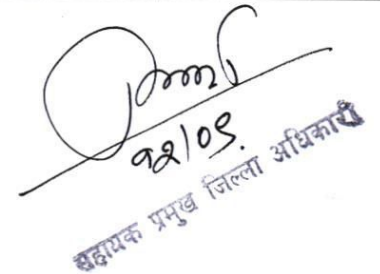 १२/०९.
सहायक प्रमुख जिल्ला अधिकारी